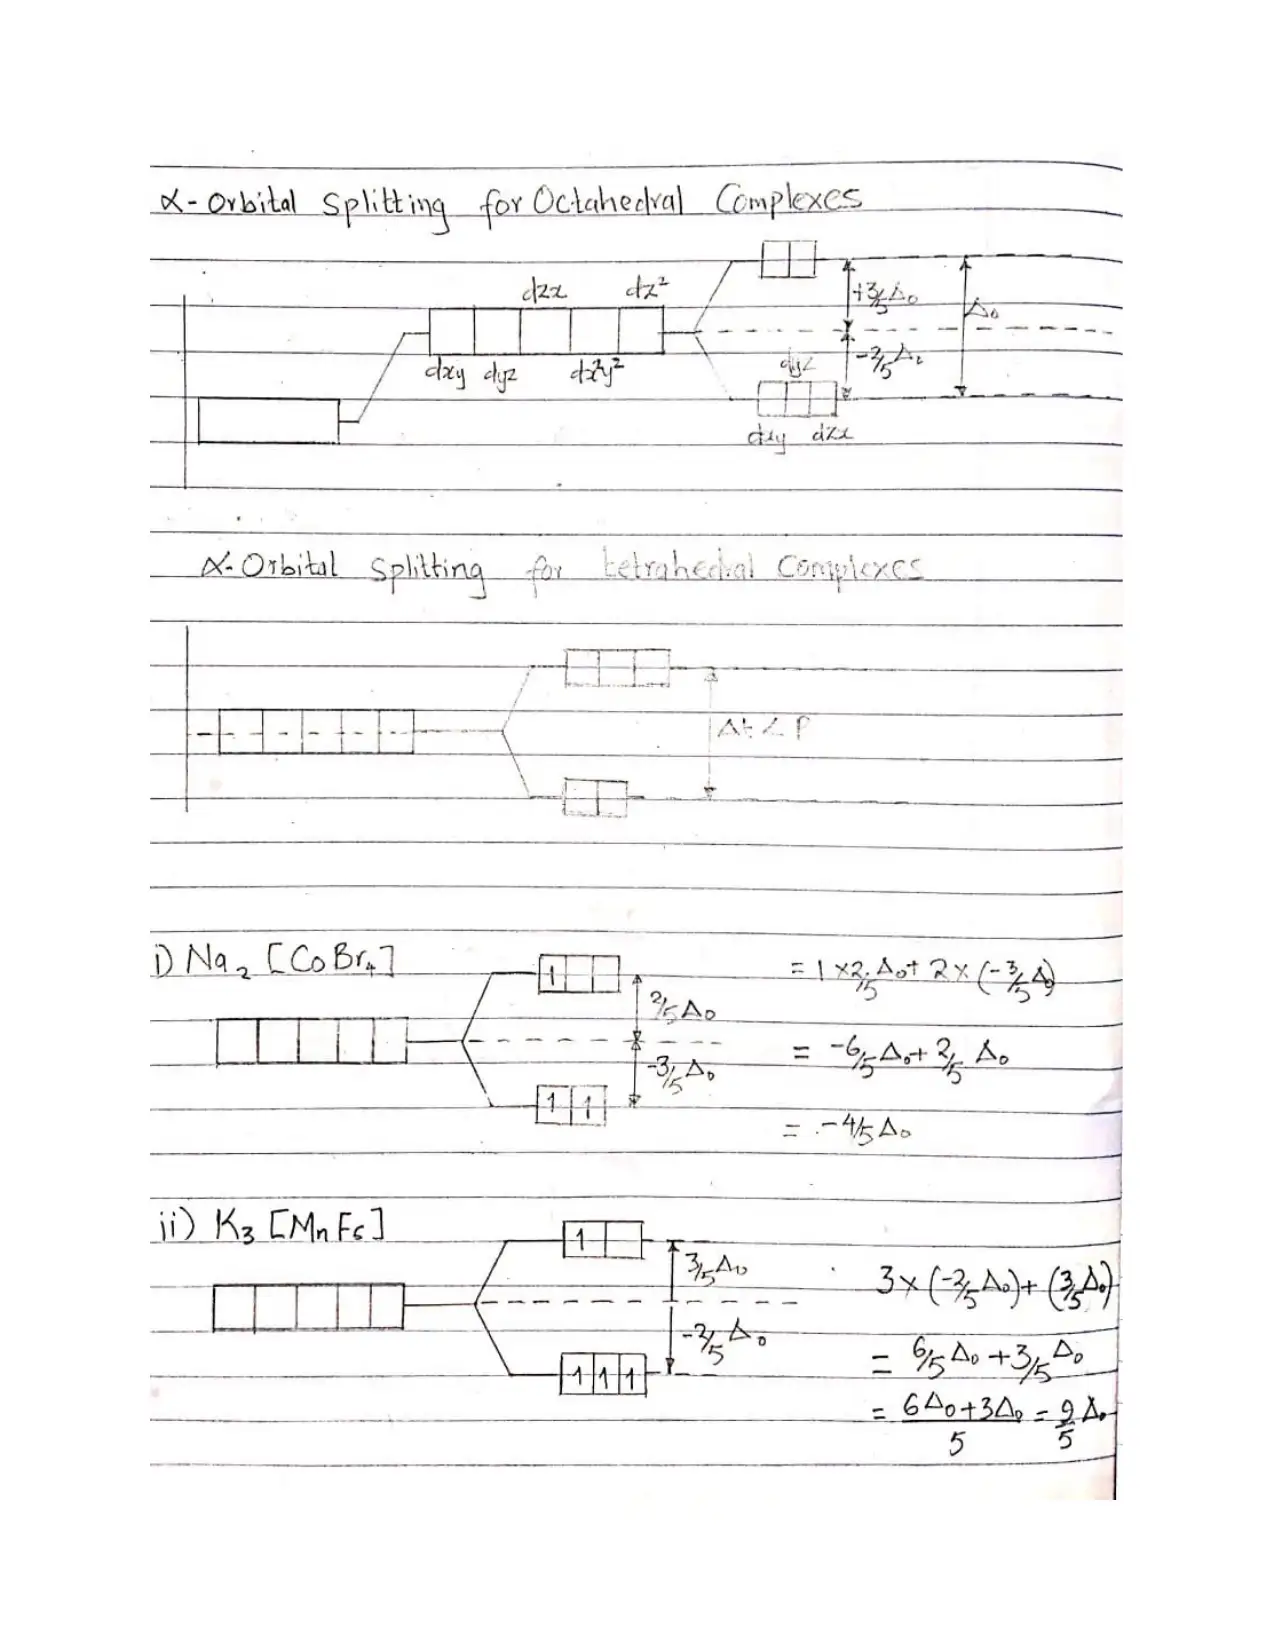 α-Orbital Splitting for Octahedral Complexes
dzx dz²
+3/5 Δo
Δo
dxy dyz dx²y²
-2/5 Δo
dyz
dxy dzx
α-Orbital Splitting for tetrahedral Complexes
Δt < P
i) Na₂ [CoBr₄]
1
2/5 Δo
= 1×2/5 Δo + 2×(-3/5 Δo)
-3/5 Δo
= -6/5 Δo + 2/5 Δo
1 1
= -4/5 Δo
ii) K₃ [MnF₆]
1
3/5 Δo
3×(-2/5 Δo)+(3/5 Δo)
-2/5 Δo
= 6/5 Δo + 3/5 Δo
1 1 1
= 6Δo+3Δo/5 = 9/5 Δo